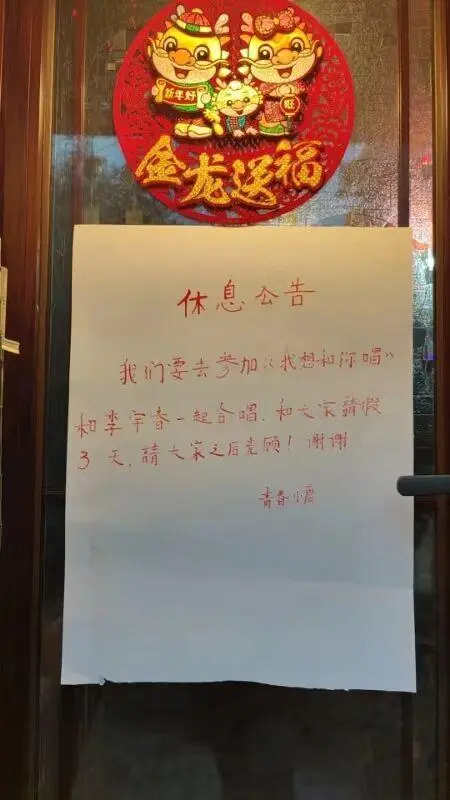 新年好
旺
金龙送福
休息公告
我们要去参加《我想和你唱》
和李宇春一起合唱.和大家請假
3天,請大家之后光顾!谢谢
青春小店